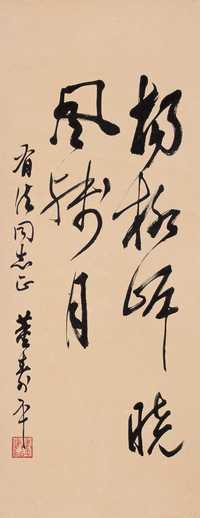 杨柳岸晓
风残月
有法同志正
董寿平